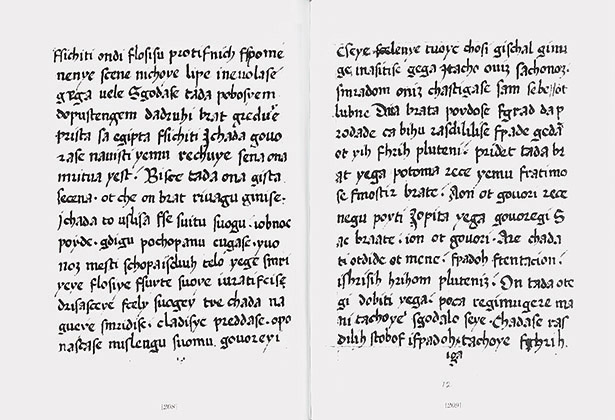 ſſichiti ondi ſloſisu protiſnich ſſpome
nenye scene nichoye lipe inevolase
grga vele Sgodase tada pobosyem
dopustengem dadruhi brat gredue
prista sa egipta ſſichiti Ichada govo
rase navisti yemu rechuye sena ona
mutua yest. Bisce tada ona gista
secena. ot che on brat rivagu ginise.
Ichada to ususa ſſe suitu suogu. iobnoc
poyde. gdigu pochopanu cugase. yuo
noz mesti telo yege smri
yeye ſlosiye ſſuvte suove iuratiſcise
ſcely suogey tve chada na
gueve smridise. cladisye preddase. opo
nascase muslengu suomu. govoreyi
[208]
Eseye tuoye chosi gischal ginu
ge inasitise gega Itacho ouiz sachonoz.
smradom oniz chastigase sam
lubne brata povdose ſgrad da p
rodade ca bihu rasdililise ſpade
ot yih ſhrih pluteni. pridet tada br
at yega potoma rece yemu ſratimo
se ſmostir brate. Aoni ot govori rece
negu poyti Zopita yega govoregi S
ac braate. ion ot govori. Are chada
ti otdide ot mene. ſpadoh ſtentacion.
ishrisih hrihom pluteniz. On tada ote
gi dobiti yega. poca regimugere ma
ni tachoye sgodalo seye. Chadase ras
dilih stobof iſpadoh. tachoye h.
iga
[209]